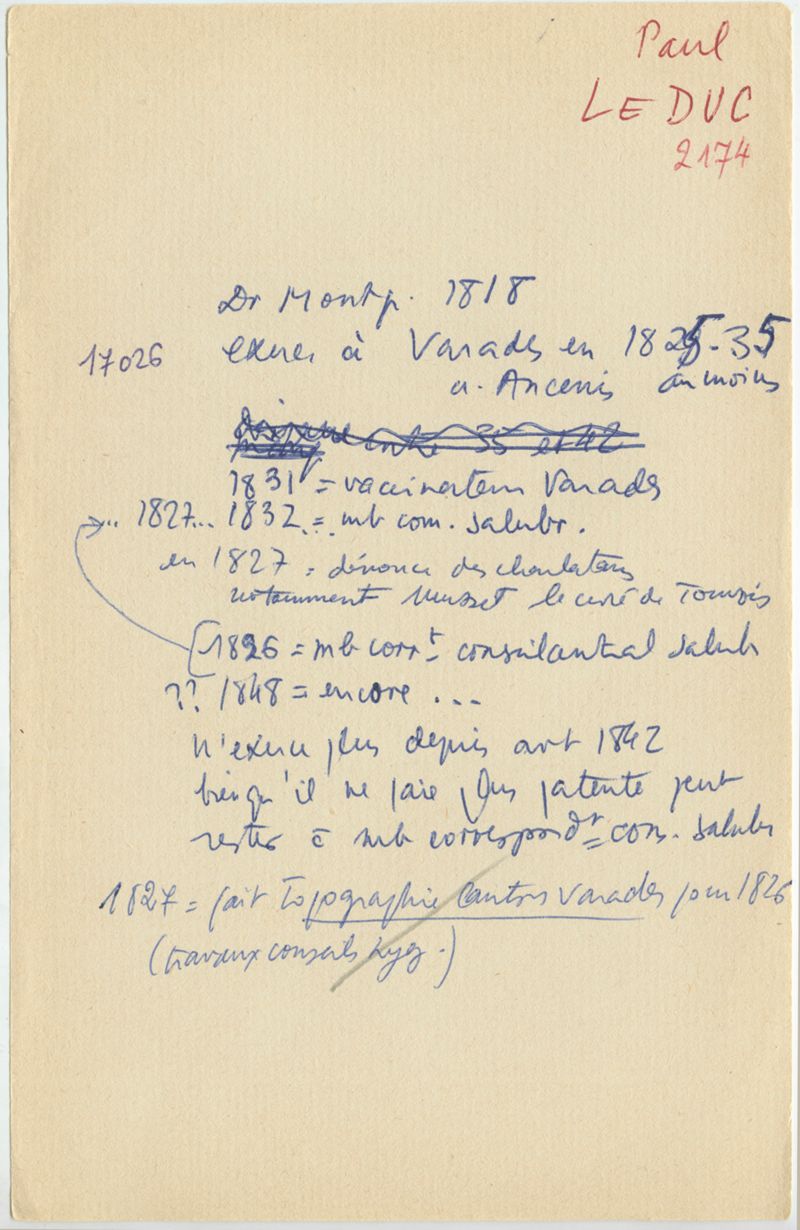 Paul
LEDUC
2174
Dr Montp. 1818
17026 exerce à Varades en 1825-35
a. Ancenis au moins
entre 35 et 42
1831 = vaccinateur Varades
.. 1827... 1832 = mb com. salubr.
en 1827 = dénonce des charlatans
notamment Musset le curé de
1826 = mb corrt conseil central salub
?? 1848 = encore ...
N'exerce plus depuis avt 1842
bien qu'il ne paie plus patente peut
rester à mb correspondt = con. salubr
1827 = fait Topographie Cantons Varades pour 1826
(travaux conseils hyg.)